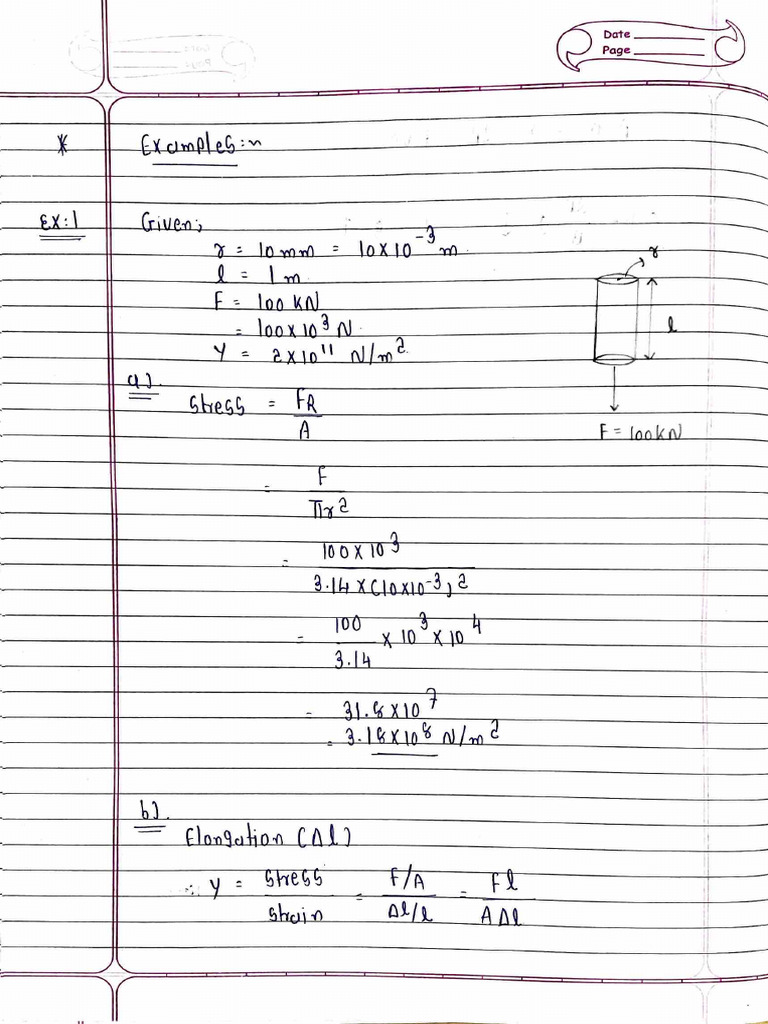 Date
Page
* Examples:~
Ex:1 Given;
r = 10 mm = 10×10⁻³ m
l = 1 m
F = 100 KN
= 100×10³ N
Y = 2×10¹¹ N/m²
r
l
F = 100kN
a).
Stress = FR/A
= F/πr²
= 100×10³/3.14×(10×10⁻³)²
= 100/3.14 × 10³ × 10⁴
= 31.8×10⁷
= 3.18×10⁸ N/m²
b).
Elongation (Δl)
∴ Y = Stress/Strain = F/A/Δl/l = Fl/AΔl